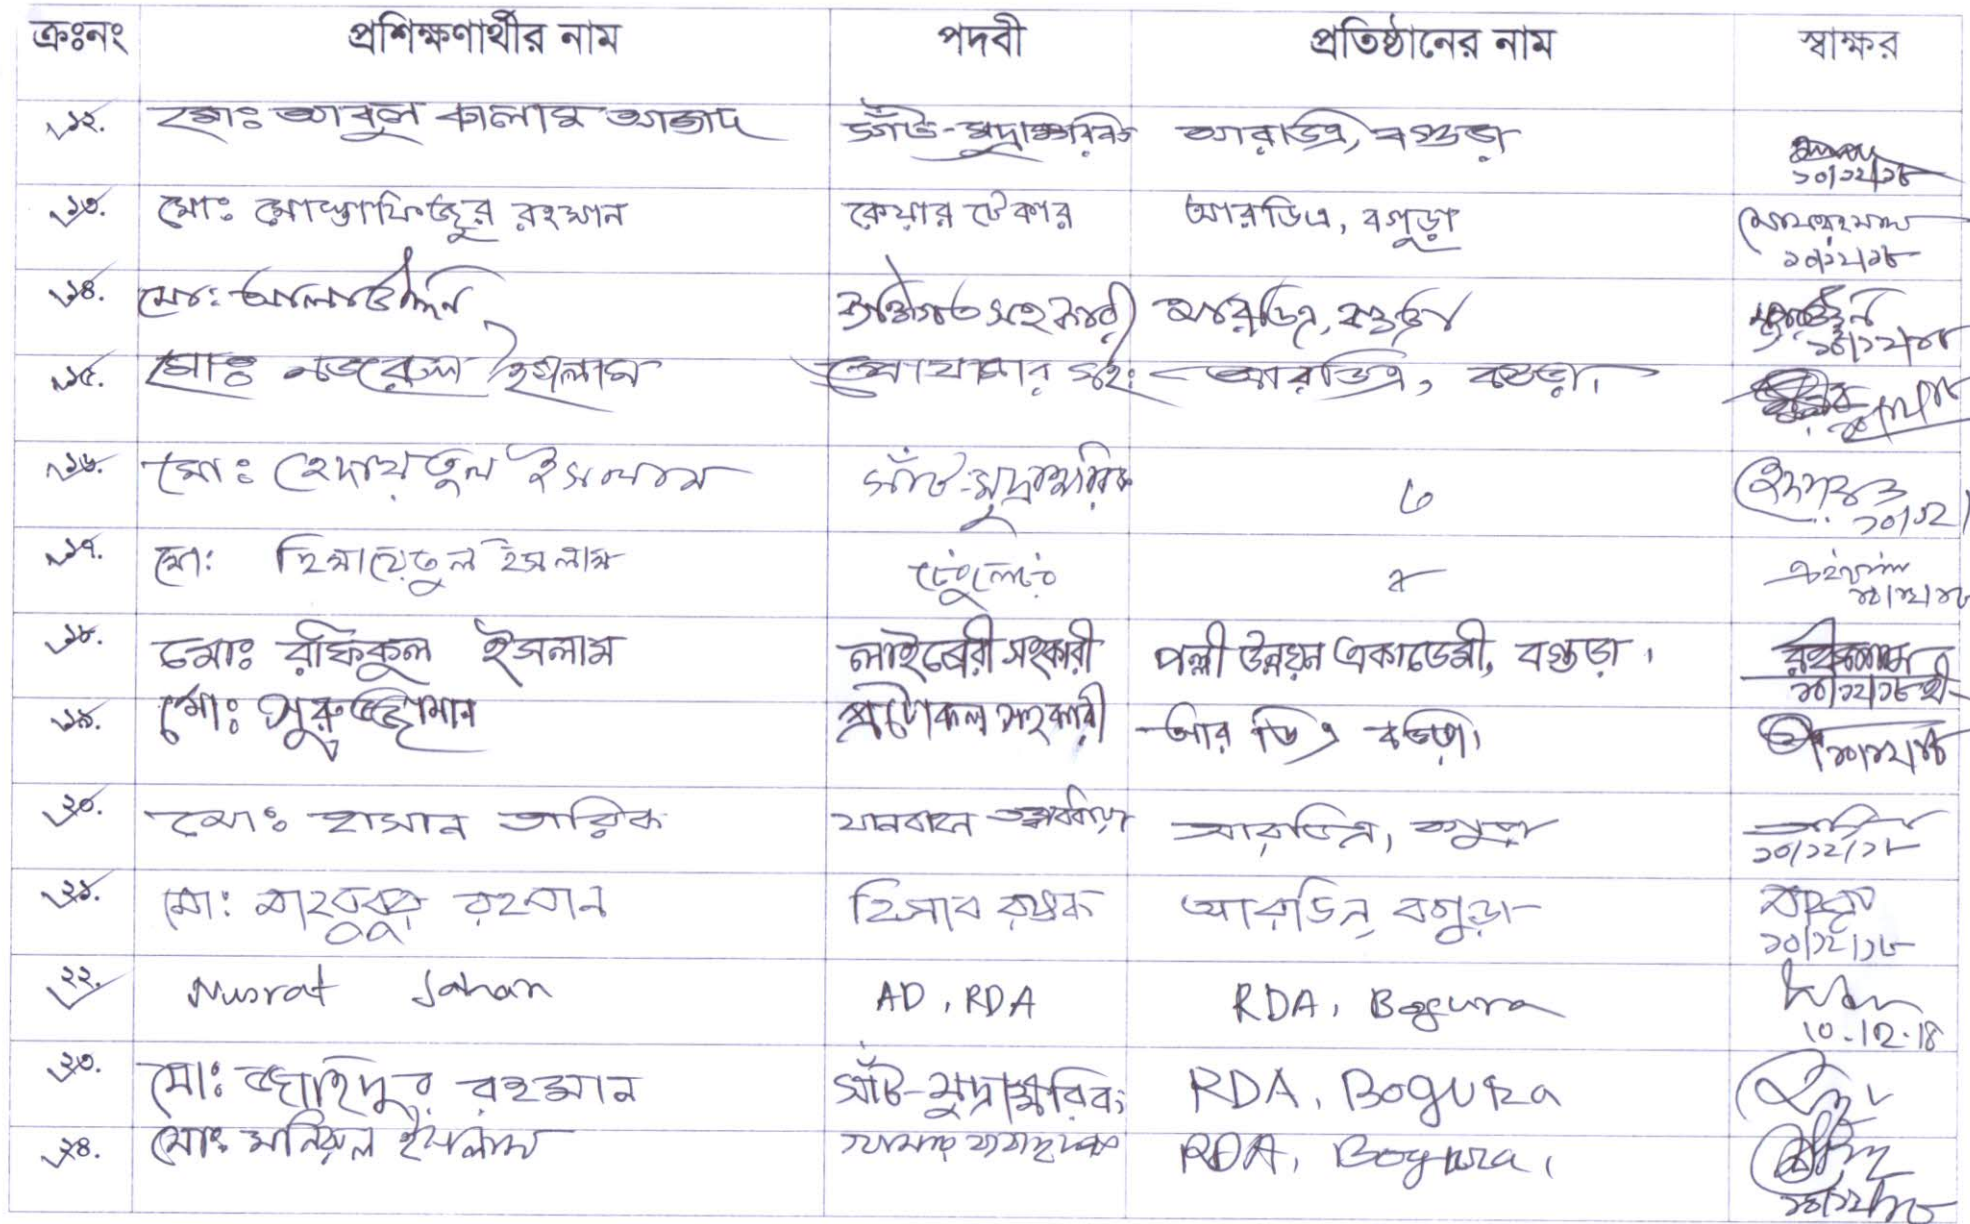 ক্রঃনং প্রশিক্ষণার্থীর নাম পদবী প্রতিষ্ঠানের নাম স্বাক্ষর
১২. মোঃ আবুল কালাম আজাদ সাঁট-মুদ্রাক্ষরিক আরডিএ, বগুড়া ১০/১২/১৮
১৩. মোঃ মোস্তাফিজুর রহমান কেয়ার টেকার আরডিএ, বগুড়া ১০/১২/১৮
১৪. মোঃ আলাউদ্দিন ব্যক্তিগত সহকারী আরডিএ, বগুড়া ১০/১২/১৮
১৫. মোঃ নজরুল ইসলাম আরডিএ, বগুড়া।
১৬. মোঃ হেদায়তুল ইসলাম সাঁট-মুদ্রাক্ষরিক ১০/১২/
১৭. মোঃ হিসায়েতুল ইসলাম ১০/১২/১৮
১৮. মোঃ রফিকুল ইসলাম লাইব্রেরী সহকারী পল্লী উন্নয়ন একাডেমী, বগুড়া। ১০/১২/১৮
১৯. মোঃ নুরুজ্জামান প্রটোকল সহকারী আর ডি এ বগুড়া। ১০/১২/১৮
২০. মোঃ হাসান তারিক যানবাহন আরডিএ, বগুড়া ১০/১২/১৮
২১. মো: মাহবুবুর রহমান হিসাব রক্ষক আরডিএ, বগুড়া ১০/১২/১৮
২২. Nusrat Jahan AD, RDA RDA, Bogura 10.12.18
২৩. মোঃ জাহিদুর রহমান সাঁট-মুদ্রাক্ষরিক RDA, Bogura
২৪. মোঃ মনিরুল ইসলাম RDA, Bogura, ১০/১২/১৮